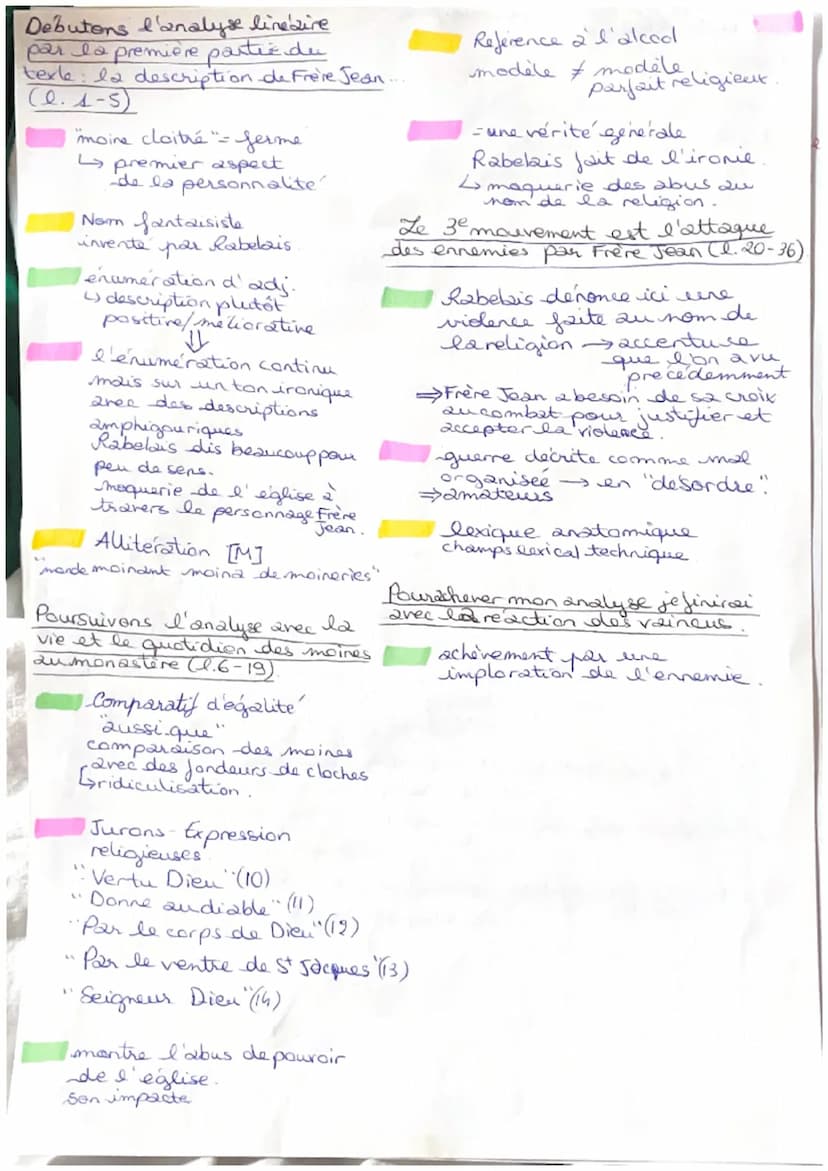 Débutons l'analyse linéaire
par la première partie du
texte : la description de Frère Jean...
(l. 1-5)
"moine cloîtré" = fermé
↳ premier aspect
de la personnalité
Nom fantaisiste
inventé par Rabelais
énumération d'adj.
↳ description plutôt
positive/méliorative
⇓
l'énumération continu
mais sur un ton ironique
avec des descriptions
amphigouriques
Rabelais dis beaucoup pour
peu de sens.
moquerie de l'église à
travers le personnage Frère
Jean.
Allitération [M]
"monde moinant moina de moineries"
Poursuivons l'analyse avec la
vie et le quotidien des moines
au monastère (l.6-19)
Comparatif d'égalité
"aussi que"
comparaison des moines
avec des fondeurs de cloches
↳ ridiculisation.
Jurons - Expression
religieuses
"Vertu Dieu" (10)
"Donne au diable" (11)
"Par le corps de Dieu" (12)
"Par le ventre de St Jacques" (13)
"Seigneur Dieu" (14)
montre l'abus de pouvoir
de l'église.
son impacte
Reférence à l'alcool
modèle ≠ modèle
parfait religieux.
= une vérité générale
Rabelais fait de l'ironie.
↳ moquerie des abus au
nom de la religion.
Le 3e mouvement est l'attaque
des ennemies par Frère Jean (l.20-36)
Rabelais dénonce ici une
violence faite au nom de
la religion → accentue ce
que l'on a vu
précédemment
⇒ Frère Jean a besoin de sa croix
au combat pour justifier et
accepter la violence.
guerre décrite comme mal
organisée → en "désordre".
⇒ amateurs
lexique anatomique
champs lexical technique
Pour achever mon analyse je finirai
avec la réaction des vaincus.
achèvement par une
imploration de l'ennemie.